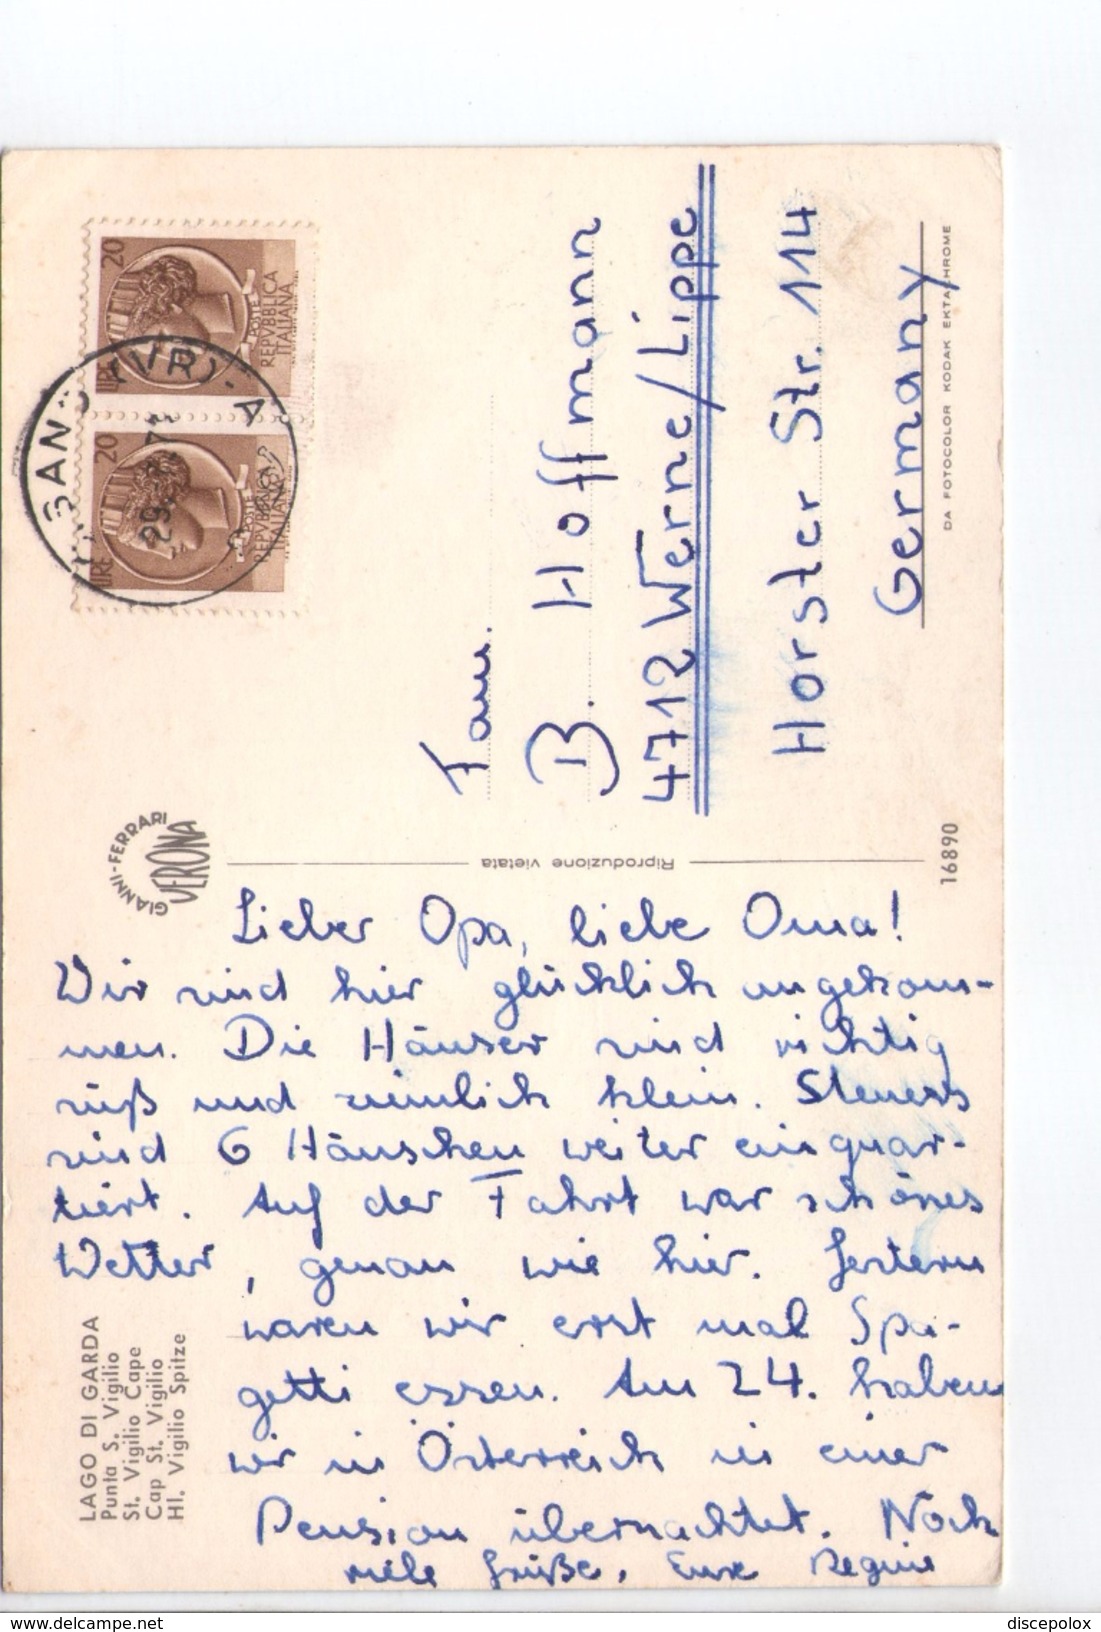 LIRE 20
POSTE
REPVBBLICA
ITALIANA
LIRE 20
POSTE
REPVBBLICA
ITALIANA
(VR) - A
Fam.
B. Hoffmann
4712 Werne/Lippe
Horster Str. 114
Germany
DA FOTOCOLOR KODAK EKTACHROME
GIANNI-FERRARI
VERONA
Riproduzione vietata
16890
Lieber Opa, liebe Oma!
Wir sind hier glücklich angekom-
men. Die Häuser sind richtig
süß und ziemlich klein. Steuers
sind 6 Häuschen weiter einquar-
tiert. Auf der Fahrt war schönes
Wetter, genau wie hier. Gestern
waren wir erst mal Spa-
getti essen. Am 24. haben
wir in Österreich in einer
Pension übernachtet. Noch
viele Grüße, Eure Regine
LAGO DI GARDA
Punta S. Vigilio
St. Vigilio Cape
Cap St. Vigilio
Hl. Vigilio Spitze
www.delcampe.net
discepolox